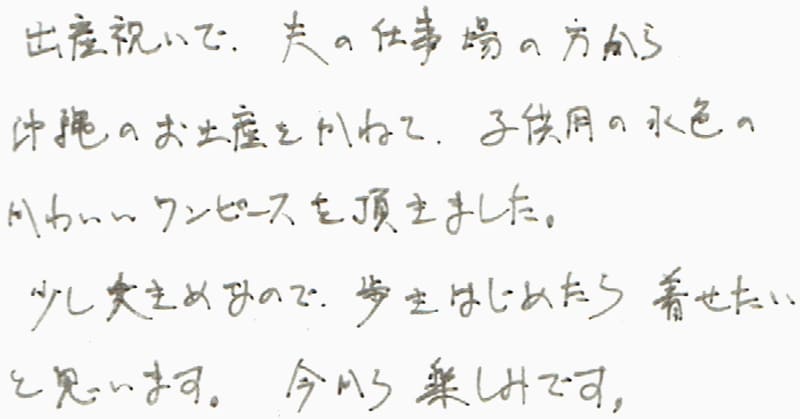 出産祝いで、夫の仕事場の方から
沖縄のお土産をかねて、子供用の水色の
かわいいワンピースを頂きました。
少し大きめなので、歩きはじめたら着せたい
と思います。今から楽しみです。